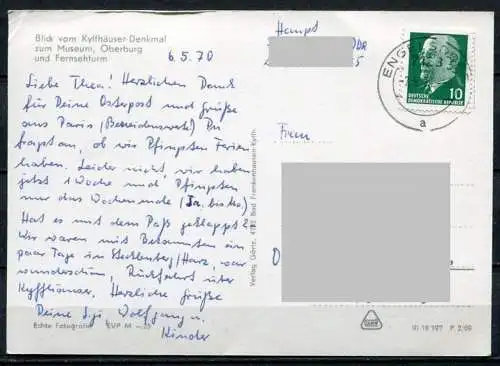 Blick vom Kyffhäuser-Denkmal
zum Museum, Oberburg
und Fernsehturm
6.5.70
Liebe Thea! Herzlichen Dank
für Deine Osterpost und Grüße
aus Paris (Beneidenswert) Du
fragst an, ob wir Pfingsten Ferien
haben. Leider nicht, wir haben
jetzt 1 Woche und Pfingsten
nur das Wochenende (Sa. bis
Hat es mit dem Paß geklappt?
Wir waren mit Bekannten ein
paar Tage in Stecklenberg/Harz, war
wunderschön, Rückfahrt über
Kyffhäuser. Herzliche Grüße
Deine Wolfgang u.
Kinder
Echte Fotografie EVP M
Verlag Görtz, Bad Frankenhausen-Kyffh.
DDR
5
ENGE
a
10
DEUTSCHE
DEMOKRATISCHE REPUBLIK
Frau
III 18 197 P 2/69